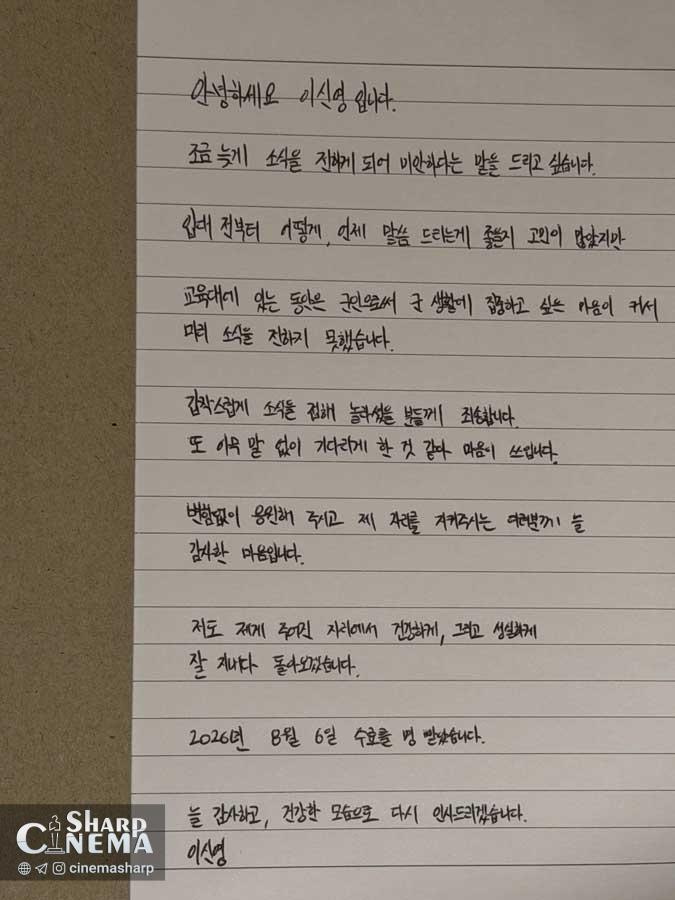 안녕하세요 이신영입니다.
조금 늦게 소식을 전하게 되어 미안하다는 말을 드리고 싶습니다.
입대 전부터 어떻게, 언제 말씀 드리는게 좋을지 고민이 많았지만
교육대에 있는 동안은 군인으로써 군 생활에 집중하고 싶은 마음이 커서
미리 소식을 전하지 못했습니다.
갑작스럽게 소식을 접해 놀라셨을 분들께 죄송합니다.
또 아무 말 없이 기다리게 한 것 같아 마음이 쓰입니다.
변함없이 응원해 주시고 제 자리를 지켜주시는 여러분께 늘
감사한 마음입니다.
저도 제게 주어진 자리에서 건강하게, 그리고 성실하게
잘 지내다 돌아오겠습니다.
2026년 8월 6일 수료를 명 받았습니다.
늘 감사하고, 건강한 모습으로 다시 인사드리겠습니다.
이신영
SHARP
CINEMA
cinemasharp